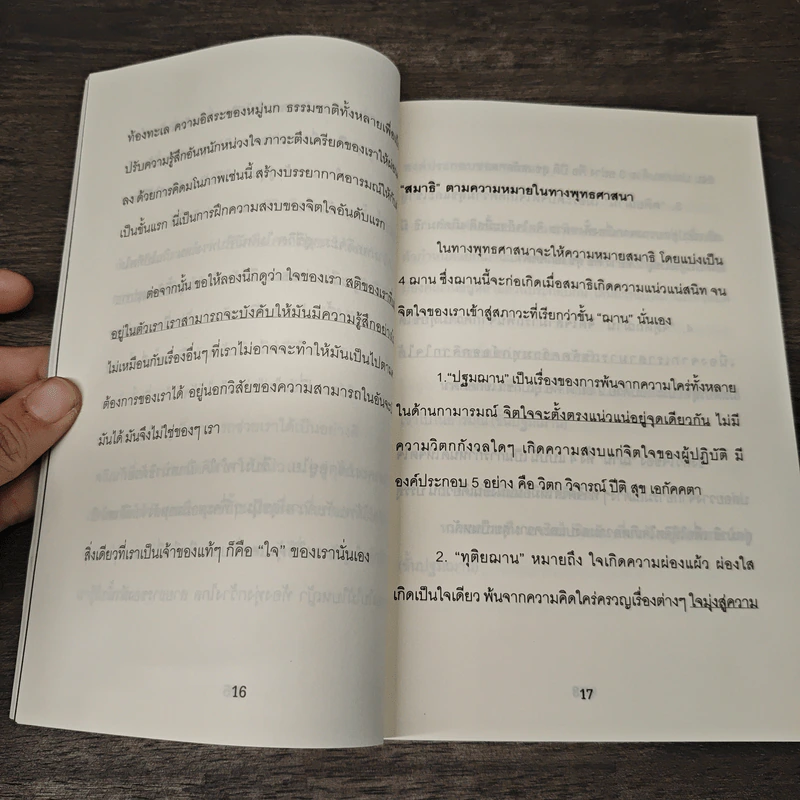 ท้องทะเล ความอิสระของหมู่นก ธรรมชาติทั้งหลายเพื่อ
ปรับความรู้สึกอันหนักหน่วงใจ ภาวะตึงเครียดของเราให้
ลง ด้วยการคิดมโนภาพเช่นนี้ สร้างบรรยากาศอารมณ์ให้
เป็นขั้นแรก นี่เป็นการฝึกความสงบของจิตใจอันดับแรก
ต่อจากนั้น ขอให้ลองนึกดูว่า ใจของเรา สติของเรา
อยู่ในตัวเรา เราสามารถจะบังคับให้มันมีความรู้สึกอย่าง
ไม่เหมือนกับเรื่องอื่นๆ ที่เราไม่อาจจะทำให้มันเป็นไปตาม
ต้องการของเราได้ อยู่นอกวิสัยของความสามารถในอัน
มันได้ มันจึงไม่ใช่ของๆ เรา
สิ่งเดียวที่เราเป็นเจ้าของแท้ๆ ก็คือ “ใจ” ของเรานั่นเอง
16
“สมาธิ” ตามความหมายในทางพุทธศาสนา
ในทางพุทธศาสนาจะให้ความหมายสมาธิ โดยแบ่งเป็น
4 ฌาน ซึ่งฌานนี้จะก่อเกิดเมื่อสมาธิเกิดความแน่วแน่สนิท จน
จิตใจของเราเข้าสู่สภาวะที่เรียกว่าชั้น “ฌาน” นั่นเอง
1.“ปฐมฌาน” เป็นเรื่องของการพ้นจากความใคร่ทั้งหลาย
ในด้านกามารมณ์ จิตใจจะตั้งตรงแน่วแน่อยู่จุดเดียวกัน ไม่มี
ความวิตกกังวลใดๆ เกิดความสงบแก่จิตใจของผู้ปฏิบัติ มี
องค์ประกอบ 5 อย่าง คือ วิตก วิจารณ์ ปีติ สุข เอกัคคตา
2. “ทุติยฌาน” หมายถึง ใจเกิดความผ่องแผ้ว ผ่องใส
เกิดเป็นใจเดียว พ้นจากความคิดใคร่ครวญเรื่องต่างๆ ใจมุ่งสู่ความ
17